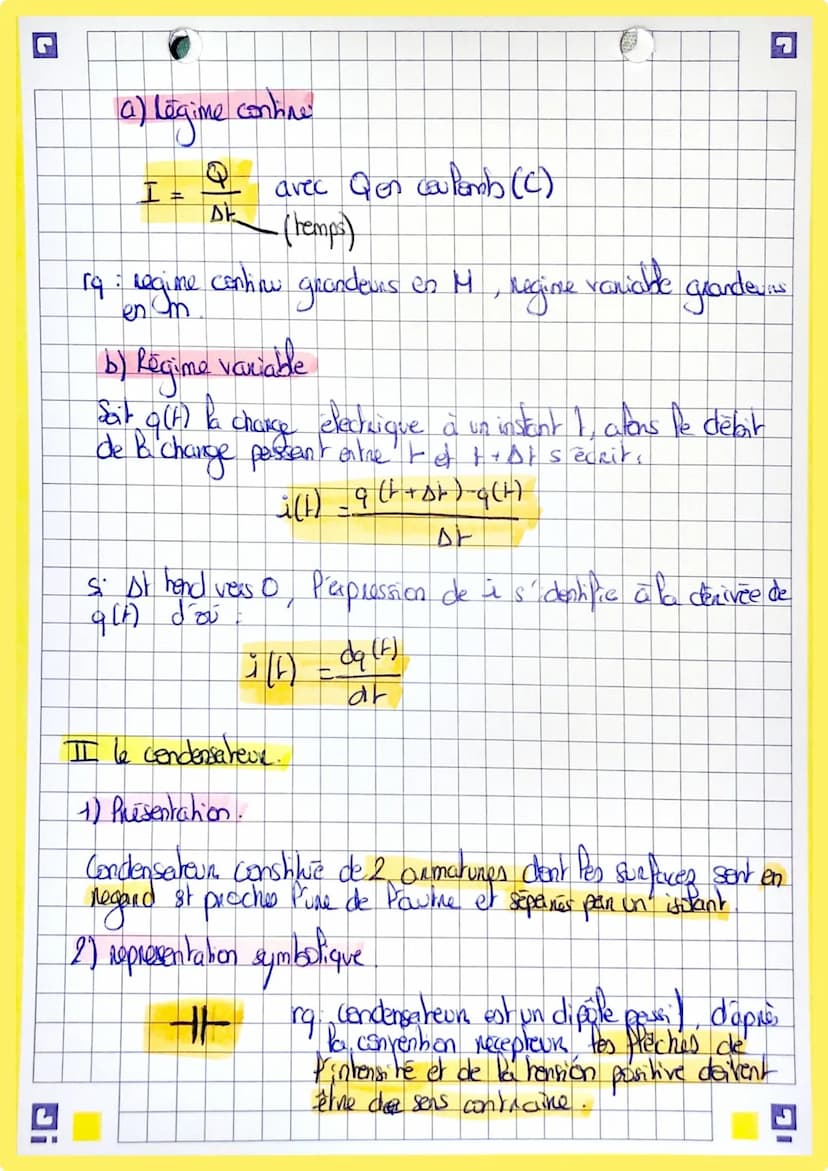 a) Régime continu
I = Q / Δt avec Q en coulomb (C)
(temps)
rq : régime continu grandeurs en M, régime variable grandeurs
en m.
b) Régime variable
Soit q(t) la charge électrique à un instant t, alors le débit
de la charge passant entre t et t + Δt s'écrit :
i(t) = q(t + Δt) - q(t) / Δt
si Δt tend vers 0, l'expression de i s'identifie à la dérivée de
q(t) d'où :
i(t) = dq(t) / dt
II le condensateur.
1) Présentation.
Condensateur constitué de 2 armatures dont les surfaces sont en
regard et proches l'une de l'autre et séparés par un isolant.
2) representation symbolique
rq : condensateur est un dipôle passif, d'après
la convention récepteur les flèches de
l'intensité et de la tension positive doivent
être de sens contraire.